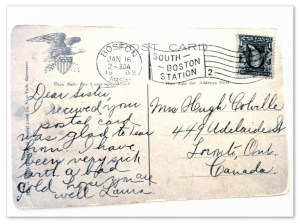 BOSTON
JAN 16
2-30A
1909
MASS.
SOUTH
BOSTON
STATION
2
ST CARD
Dear Sister
received your
postal card
was glad to hear
from I have
been very sick
with a bad
cold hope you are
well Laura
Mrs Hugh Colville
449 Adelaide St
Toronto, Ont.
Canada.